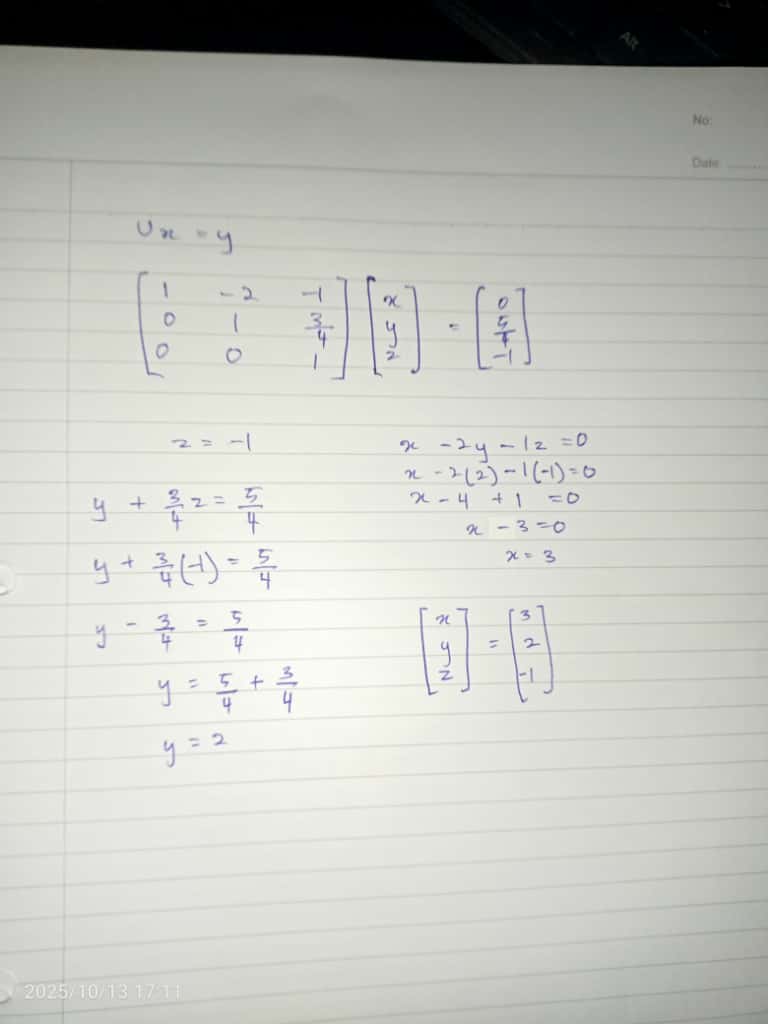 AR
No:
Date
Ux = y
[1 -2 -1; 0 1 3/4; 0 0 1] [x; y; z] = [0; 5/4; -1]
z = -1
y + 3/4 z = 5/4
y + 3/4 (-1) = 5/4
y - 3/4 = 5/4
y = 5/4 + 3/4
y = 2
x - 2y - 1z = 0
x - 2(2) - 1(-1) = 0
x - 4 + 1 = 0
x - 3 = 0
x = 3
[x; y; z] = [3; 2; -1]
2025/10/13 17:11